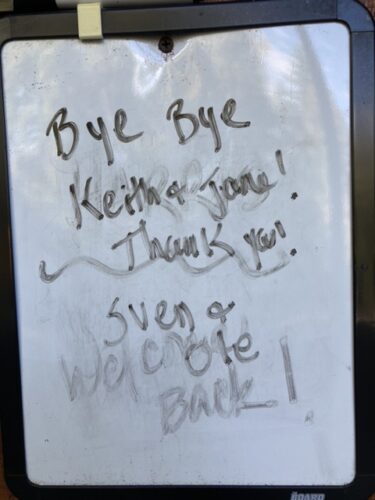 Bye Bye
Keith & Jane!
Thank you!
Sven &
Welcome
Ote
Back!
BOARD